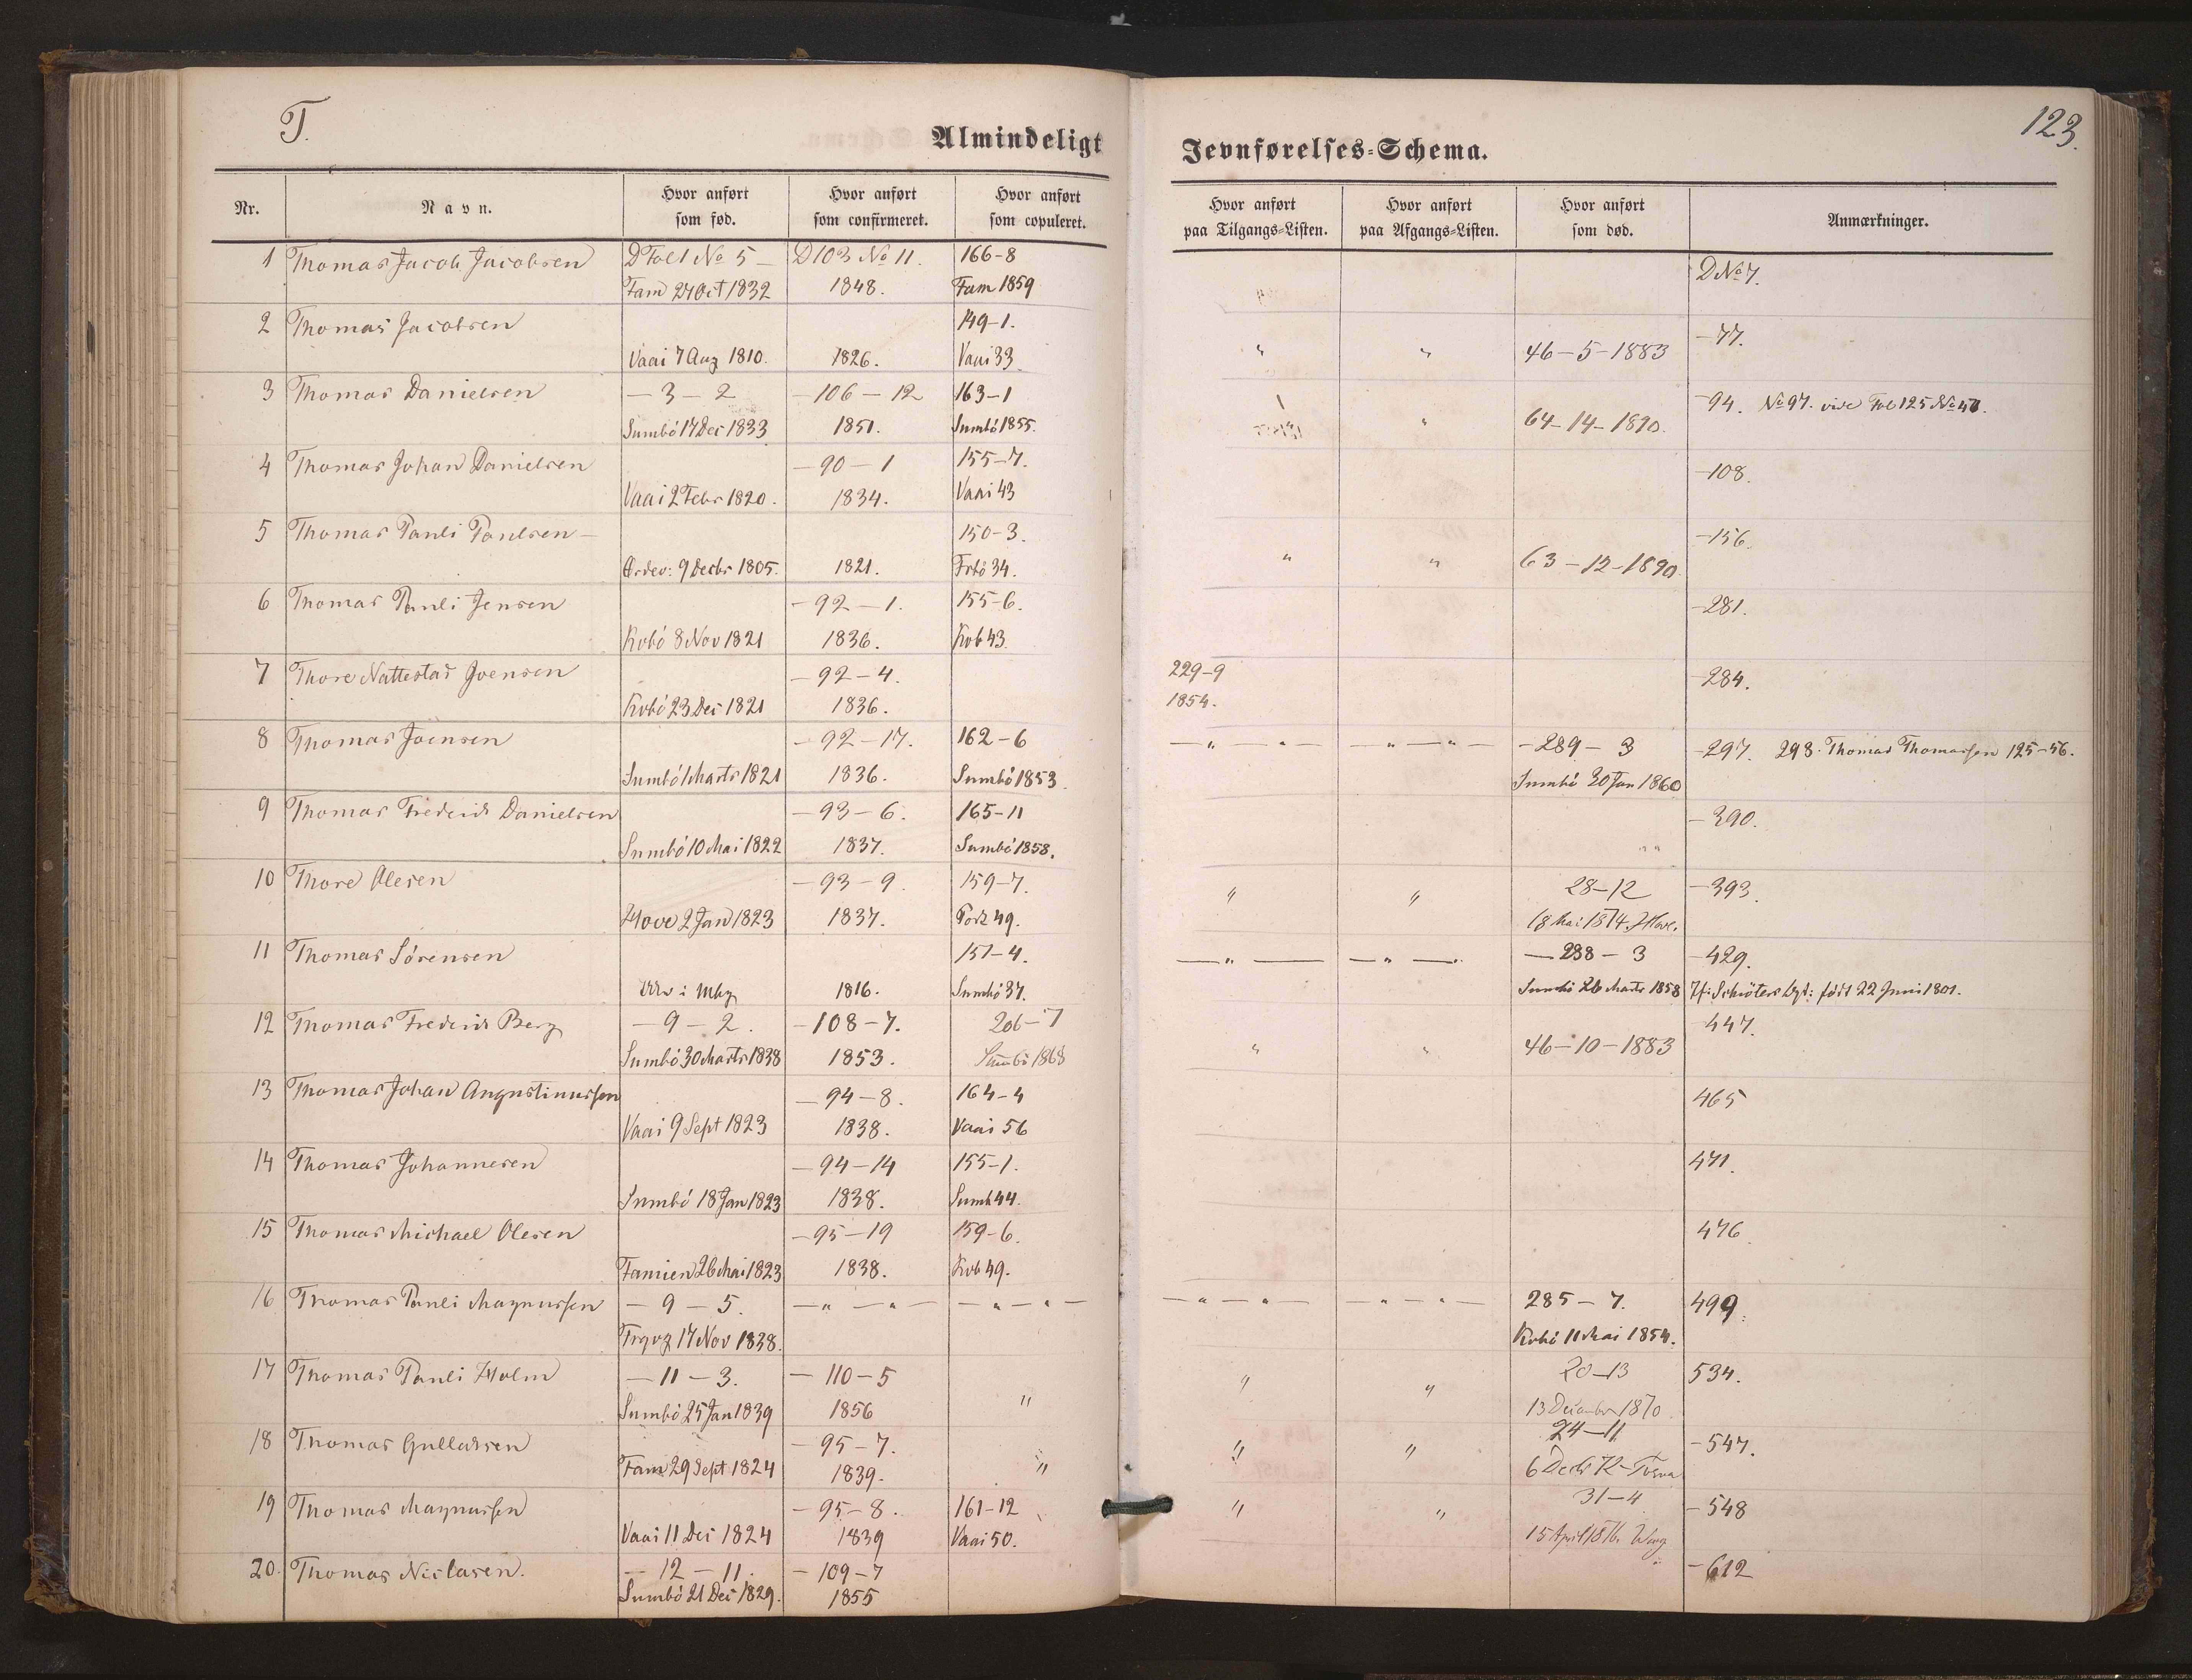 T.
123.
Almindeligt Jevnførelses-Schema.
Nr. Navn. Hvor anført som fød. Hvor anført som confirmeret. Hvor anført som copuleret. Hvor anført paa Tilgangs-Listen. Hvor anført paa Afgangs-Listen. Hvor anført som død. Anmærkninger.
1 Thomas Jacob Jacobsen D Fol 1 No 5 – D 103 No 11. 166-8 D No 7.
Fam 27 Oct 1832 1848. Fam 1859
2 Thomas Jacobsen 149-1. -77.
Vaai 7 Aug 1810. 1826. Vaai 33 " " 46-5-1883
3 Thomas Danielsen -3-2 -106-12 163-1 -94. No 97. vide Fol 125 No 47.
Sumbö 17 Dec 1833 1851. Sumbö 1855. " 64-14-1890.
4 Thomas Johan Danielsen -90-1 155-7. -108.
Vaai 2 Febr 1820. 1834. Vaai 43
5 Thomas Pauli Poulsen – 150-3. -156.
Ördev: 9 Decbr 1805. 1821. Frbö 34. " " 63-12-1890
6 Thomas Pauli Jensen -92-1. 155-6. -281.
Kvbö 8 Nov 1821 1836. Kvb 43.
7 Thore Nattestad Joensen -92-4. 229-9 -284.
Kvbö 23 Dec 1821 1836. 1854.
8 Thomas Joensen -92-17. 162-6 -"-"- -"-"- -289-3 -297. 298. Thomas Thomassen 125-56.
Sumbö 1 Marts 1821 1836. Sumbö 1853. Sumbö 30 Jan 1860
9 Thomas Frederik Danielsen -93-6. 165-11 -390.
Sumbö 10 Mai 1822 1837. Sumbö 1858.
10 Thore Olesen -93-9. 159-7. " " 28-12 -393.
Hove 2 Jan 1823 1837. Pork 49. 18 Mai 1874. Hove.
11 Thomas Sörensen 151-4. -"- -"- -288-3 -429.
1816. Sumbö 37. Sumbö 26 Marts 1858 Jf: Schröters Opt: född 22 Juni 1801.
12 Thomas Frederik Berg -9-2. -108-7. 206-7 -447.
Sumbö 30 Marts 1838 1853. Sumbö 1868 " " 46-10-1883
13 Thomas Johan Augustinussen -94-8. 164-4 465
Vaai 9 Sept 1823 1838. Vaai 56
14 Thomas Johannesen -94-14 155-1. 471.
Sumbö 18 Jan 1823 1838. Sumb 44.
15 Thomas Michael Olesen -95-19 159-6. 476.
Famien 26 Mai 1823 1838. Kvb 49.
16 Thomas Pauli Magnussen -9-5. -"-"- -"-"- -"-"- -"-"- 285-7. 499.
Trgvg 17 Nov 1838. Kvbö 11 Mai 1854.
17 Thomas Pauli Holm -11-3. -110-5 " " 20-13 534.
Sumbö 25 Jan 1839 1856 " 13 December 1870
18 Thomas Gullaksen -95-7. " " 24-11 -547.
Fam 29 Sept 1824 1839. " 6 Decbr 72
19 Thomas Magnussen -95-8. 161-12 " " 31-4 -548
Vaai 11 Dec 1824 1839 Vaai 50. 15 April 1876.
20. Thomas Niclasen. -12-11. -109-7 -612
Sumbö 21 Dec 1829. 1855